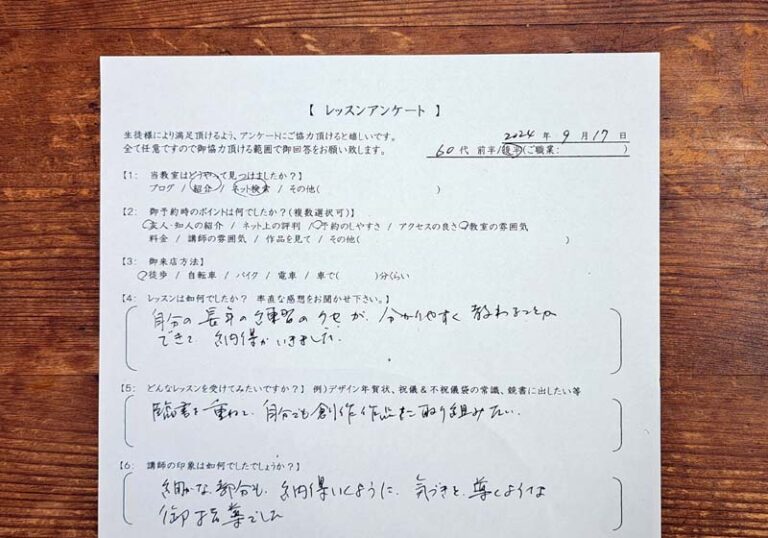 【 レッスンアンケート 】
生徒様により満足頂けるよう、アンケートにご協力頂けると嬉しいです。
2024 年 9 月 17 日
全て任意ですので御協力頂ける範囲で御回答をお願い致します。
60 代 前半/後半(ご職業: )
【1: 当教室はどうやって見つけましたか?】
ブログ / 紹介 / ネット検索 / その他( )
【2: 御予約時のポイントは何でしたか?(複数選択可)】
友人・知人の紹介 / ネット上の評判 / 予約のしやすさ / アクセスの良さ / 教室の雰囲気
料金 / 講師の雰囲気 / 作品を見て / その他( )
【3: 御来店方法】
徒歩 / 自転車 / バイク / 電車 / 車で( )分くらい
【4: レッスンは如何でしたか? 率直な感想をお聞かせ下さい。】
自分の長年の練習のクセが、分かりやすく教わることが
できて 納得がいきました.
【5: どんなレッスンを受けてみたいですか?】 例)デザイン年賀状、祝儀&不祝儀袋の常識、競書に出したい等
臨書を重ねて、自分でも創作作品に取り組みたい.
【6: 講師の印象は如何でしたでしょうか?】
細かな部分も、納得いくように、気づきと導くような
御指導でした